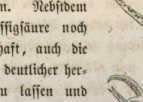 n. Nebstdem
ssigsäure noch
haft, auch die
deutlicher her-
u lassen und